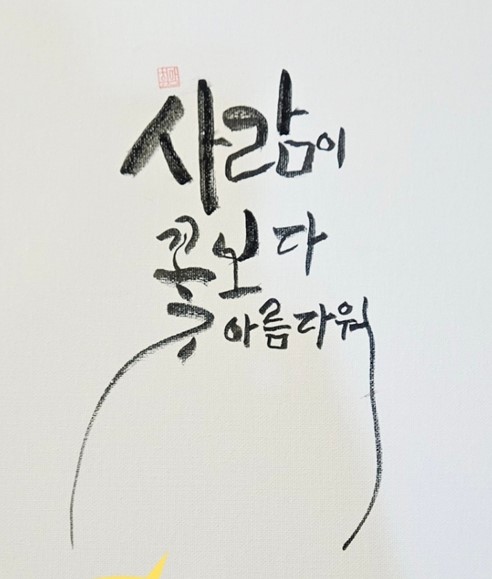 사람이
꽃보다
아름다워